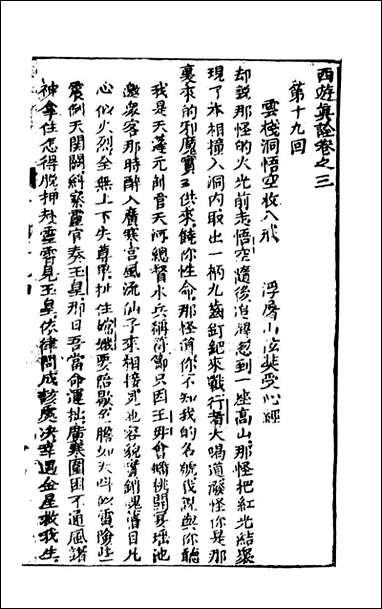 西遊真詮卷之三
第十九回
雲棧洞悟空收八戒 浮屠山玄奘受心經
却說那怪的火光前走悟空隨後追尋忽到一座高山那怪把紅光結聚
現了本相撞入洞內取出一柄九齒釘鈀來戰行者大喝道潑怪你是那
裏來的邪魔實實供來饒你性命那怪道你不知我的名號我說與你聽
我是天蓬元帥官天河總督水兵稱節只因王母會蟠桃開宴瑤池
邀眾客那時醉入廣寒宮風流仙子來相接見他容貌實銷魂舊日凡
心似火烈全無上下失尊卑扯住嫦娥要陪歇色膽如天叫似雷險些
震倒天關闕糾察靈官奏玉皇那日吾當命運拙廣寒圍困不通風諸
神拿住怎得脫押赴靈霄見玉皇依律問成該處決幸遇金星救我生